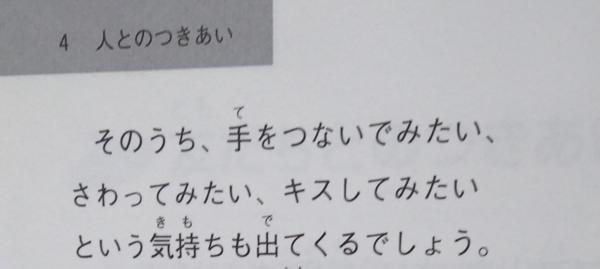 4 人とのつきあい
そのうち、手をつないでみたい、
さわってみたい、キスしてみたい
という気持ちも出てくるでしょう。